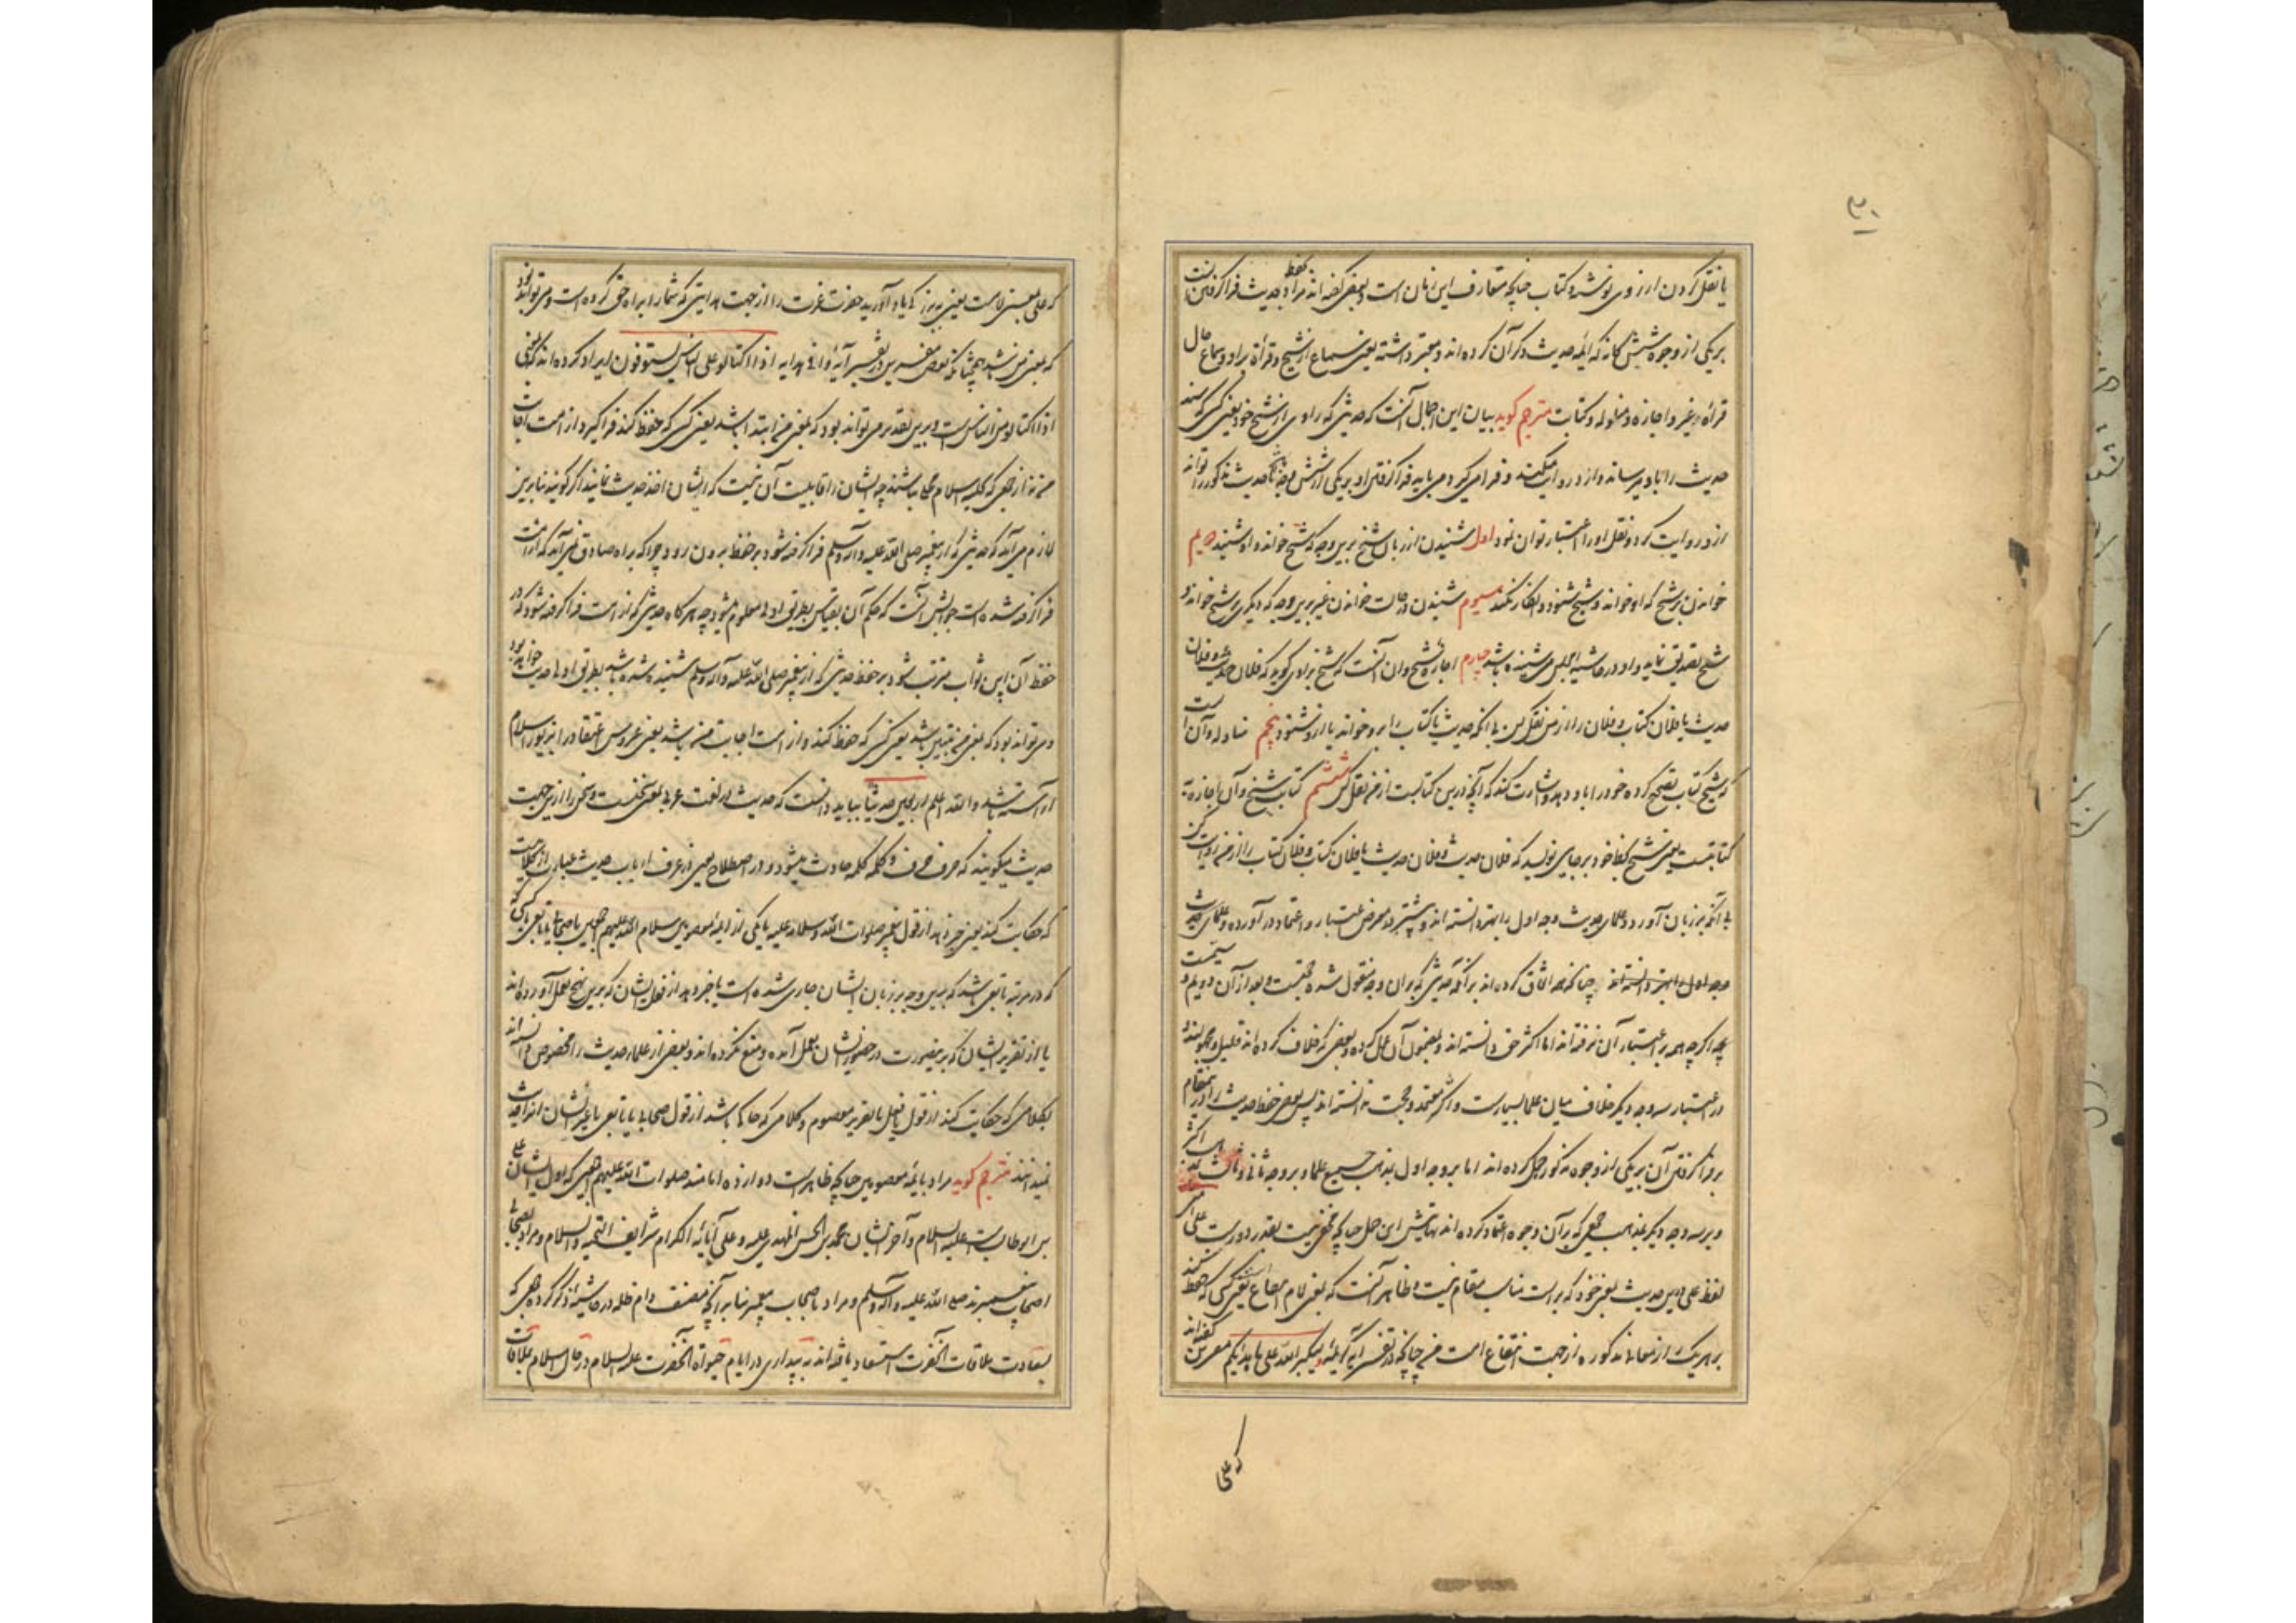 یا نقل کردن از روی نوشته و کتاب چنانچه متعارف این زمان است و بعضی گفته‌اند مراد بحفظ حدیث فرا گرفتن است
بر یکی از وجوه شش گانه که ائمه حدیث ذکر آن کرده‌اند و معتبر داشته یعنی سماع از شیخ و قرأة بر او و سماع حال
قرأة غیر و اجازه و مناوله و کتابت مترجم گوید بیان این اجمال آنست که حدیثی که راوی از شیخ خود یعنی کسی که سند
حدیث را باو میرساند و ازو روایت میکند و فرا میگیرد می باید فرا گرفتن او بر یکی از شش وجه باشد تا حدیث مذکور را تواند
ازو روایت کرد و نقل او را اعتبار توان نمود اول شنیدن از زبان شیخ برین وجه که شیخ خواند و او شنید دویم
خواندن بر شیخ که او خواند و شیخ شنود و انکار نکند سیوم شنیدن در حالت خواندن غیر برین وجه که دیگری بر شیخ خواند و
شیخ تصدیق نماید و او در حاشیه مجلس می شنیده باشد چهارم اجازه شیخ و آن آنست که شیخ براوی گوید که فلان حدیث و فلان
حدیث یا فلان کتاب و فلان را از من نقل کن بی آنکه حدیث یا کتاب را برو خواند یا ازو شنود پنجم مناوله و آن آنست
که شیخ کتاب تصحیح کرده خود را باو دهد و اشارت کند که آنچه درین کتابست از من نقل کن ششم کتابت شیخ و آن اجازه به
کتابتست یعنی شیخ بخط خود بر جایی نویسد که فلان حدیث و فلان حدیث یا فلان کتاب و فلان کتاب را از من روایت کن
بی آنکه بر زبان آورد و علمای حدیث وجه اول را بهتر دانسته‌اند و بیشتر در معرض اعتبار و اعتماد در آورده و علمای حدیث
وجه اول را بهتر دانسته‌اند چنانکه همه اتفاق کرده‌اند بر آنکه حدیثی که بر آن وجه منقول شده حجتست و بعد از آن دویم و سیم
چه اگر چه همه بر اعتبار آن نرفته‌اند اما اکثر حق دانسته‌اند و بمضمون آن عمل کرده و بعضی که خلاف کرده‌اند قلیل و
در اعتبار سه وجه دیگر خلاف میان علما بسیارست و اکثر معتمد و حجت ندانسته‌اند پس بعضی حفظ حدیث را درین مقام
بر فرا گرفتن آن بر یکی از وجوه مذکور حمل کرده‌اند اما بر وجه اول بمذهب جمیع علما و بر وجه ثانی و ثالث بمذهب اکثر
و بر سه وجه دیگر بمذهب جمعی که بر آن وجوه اعتماد کرده‌اند نهایتش این حمل چنانچه مخفی نیست بقدر دورست
لفظ علی درین حدیث بمعنی خود که براست مناسب مقام نیست و ظاهر آنست که بمعنی لام انتفاع یعنی کسی که حفظ کند
بر هر یک از معانی مذکوره از جهت انتفاع امت من چنانچه در تفسیر آیه کریمه و لتکبروا الله علی ما هداکم مفسرین گفته‌اند
که علی
که علی بمعنی لامست یعنی به بزرگی یاد آورید حضرت عزت را از جهت هدایتی که شما را براه حق کرده است و می تواند بود
که بمعنی من باشد همچنانکه بعضی مفسرین در تفسیر آیه وافی هدایه اذا اکتالوا علی الناس یستوفون ایراد کرده‌اند که بمعنی
اذا اکتالوا من الناس است و برین تقدیر می تواند بود که بمعنی من ابتدا باشد یعنی کسی که حفظ کند و فرا گیرد از امت اجابت
من نه از جمعی که بکلمه اسلام محلی نباشند چه ایشان را قابلیت آن نیست که از ایشان اخذ حدیث نمایند اگر گویند بنابرین
لازم می آید که حدیثی که از پیغمبر صلی الله علیه و آله و سلم فرا گرفته شود بر حفظ بیرون رود چرا که براو صادق نمی آید که از امت
فرا گرفته شده است جوابش آنست که حکم آن بقیاس بطریق اولی معلوم میشود چه هر گاه حدیثی که از امت فرا گرفته شود که در
حفظ آن این ثواب مترتب شود بر حفظ حدیثی که از پیغمبر صلی الله علیه و آله و سلم شنیده شده باشد بطریق اولی خواهد بود
و می تواند بود که بمعنی من تبیین باشد یعنی کسی که حفظ کند و از امت اجابت من باشد یعنی عروس اعتقاد را بزیور اسلام
آراسته باشد و الله اعلم اربعین حدیثا بباید دانست که حدیث در لغت عرب بمعنی سخنست و سخن را ازین جهت
حدیث میگویند که حرف حرف و کلمه کلمه حادث میشود و در اصطلاح یعنی در عرف ارباب حدیث عبارت از کلامیست
که حکایت کند یعنی خبر دهد از قول پیغمبر صلوات الله و سلامه علیه یا یکی از ائمه معصومین سلام الله علیهم اجمعین یا صحابی یا تابعی یا کسی که
که در مرتبه تابعی باشد که برین وجه بر زبان ایشان جاری شده است یا خبر دهد از فعل ایشان که برین نهج بعمل آورده‌اند
یا از تقریر ایشان که برین صورت در حضور ایشان بعمل آمده و منع نکرده‌اند و بعضی از علماء حدیث را مخصوص دانسته‌اند
بکلامی که حکایت کند از قول یا فعل یا تقریر معصوم و کلامی که حاکی باشد از قول صحابی یا تابعی یا غیر ایشان آنرا حدیث
نمیدانند مترجم گوید مراد بائمه معصومین چنانچه ظاهرست دوازده امامند صلوات الله علیهم اجمعین که اول ایشان علی
بن ابو طالبست علیه السلام و آخر ایشان محمد بن الحسن المهدی علیه و علی آبائه الکرام شرایف التحیه و السلام و مراد بصحابی
اصحاب پیغمبرند صلی الله علیه و آله و سلم و مراد باصحاب پیغمبر بنا بر آنچه مصنف دام ظله در حاشیه ذکر کرده جمعی که
بسعادت ملاقات آنحضرت استسعاد یافته‌اند به بیداری در ایام حیوة آنحضرت علیه السلام در حال اسلام ملاقات